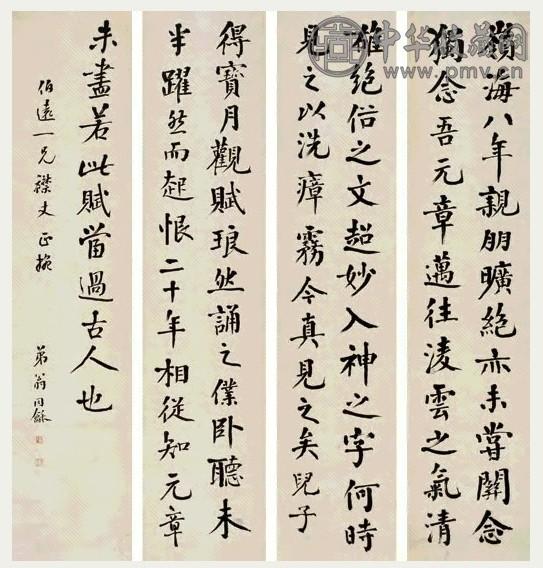 嶺海八年親朋曠絶亦未嘗關念
獨念吾元章邁往淩雲之氣清
雄絶俗之文超妙入神之字何時
見之以洗瘴霧今真見之矣兒子
得寶月觀賦琅然誦之僕卧聽未
半躍然而起恨二十年相從知元章
未盡若此賦當過古人也
伯遠一兄襟丈正
弟翁同龢
中华收藏网
www.pmv.cn